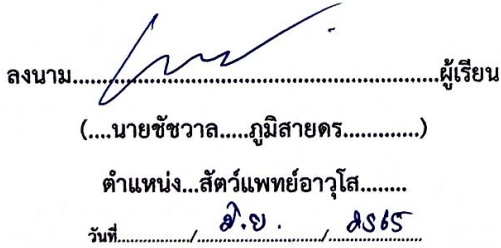 ลงนาม....................................................................ผู้เรียน
(....นายชัชวาล.....ภูมิสายดร.............)
ตำแหน่ง...สัตว์แพทย์อาวุโส........
วันที่................/...มิ.ย..../...2565...